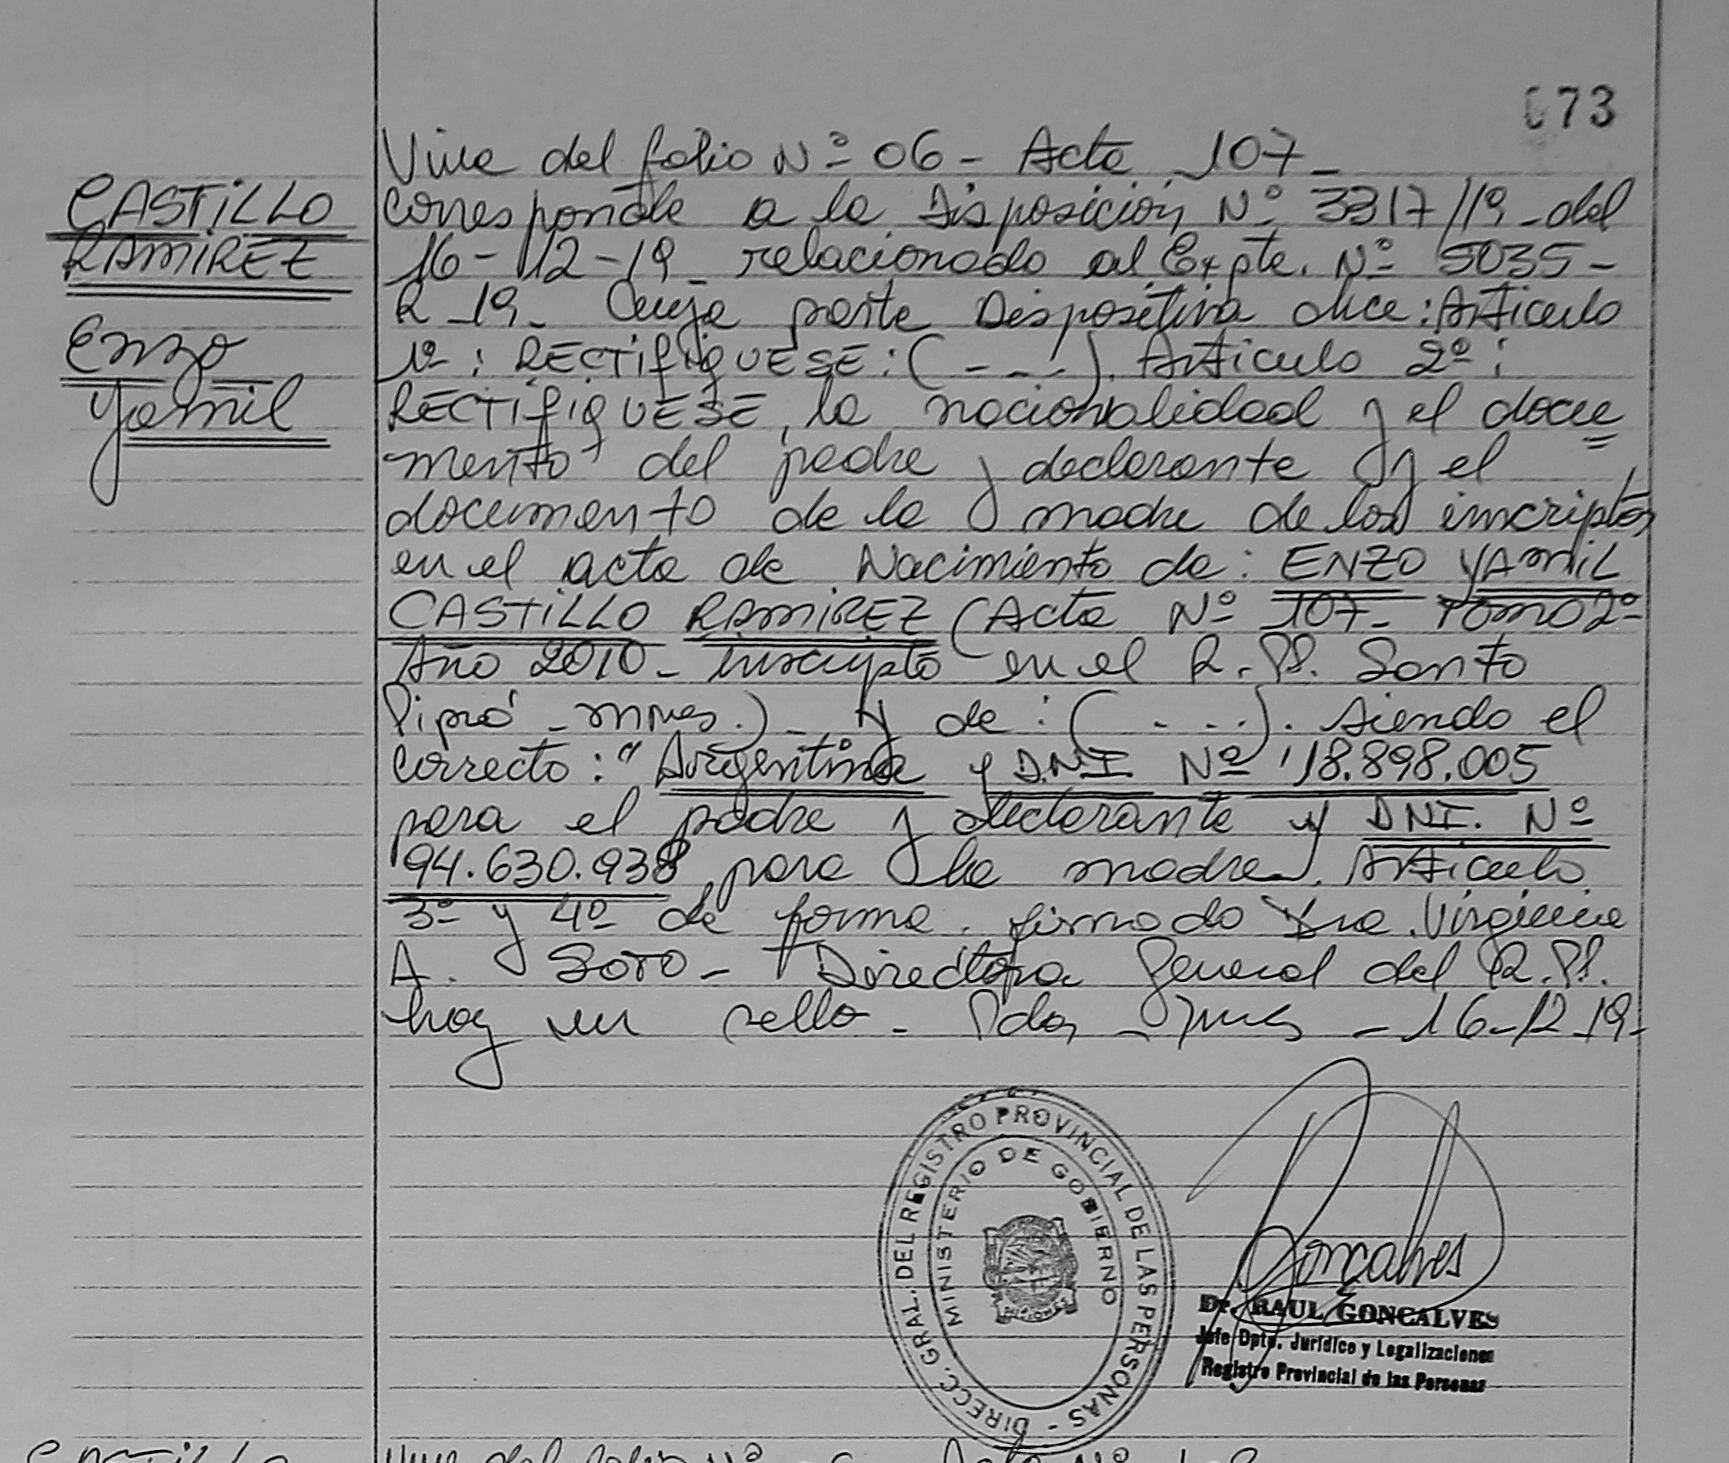 073
CASTiLLO
RAMIREZ
Enzo
Yamil
Viene del folio Nº 06 - Acta 107 -
corresponde a la Disposición Nº 3317/19 - del
16 - 12 - 19 - relacionado al Expte. Nº 5035 -
R - 19 - Cuya parte Dispositiva dice: Articulo
1º: RECTIFIQUESE: ( - - - ). Articulo 2º:
RECTIFIQUESE, la nacionalidad y el docu
mento del padre y declarante y el
documento de la madre de los inscriptos
en el acta de Nacimiento de: ENZO YAMIL
CASTiLLO RAMIREZ (Acta Nº 107 - Tomo 2º
Año 2010 - inscripto en el R.PP. Santo
Pipó - Mnes.) - Y de: ( - - - ). siendo el
correcto: "Argentina y D.N.I. Nº 18.898.005
para el padre y declarante y DNI. Nº
94.630.938 para la madre. Articulo
3º y 4º de forma. firmado Dra. Virginia
A. Soto - Directora General del R.PP.
hay un sello - Pdas - Mnes - 16-12-19-
DIRECC. GRAL. DEL REGISTRO PROVINCIAL DE LAS PERSONAS -
MINISTERIO DE GOBIERNO
MISIONES
Goncalves
Dr. RAUL GONCALVES
Jefe Dpto. Jurídico y Legalizaciones
Registro Provincial de las Personas
CASTiLLO
Viene del folio Nº Acta Nº